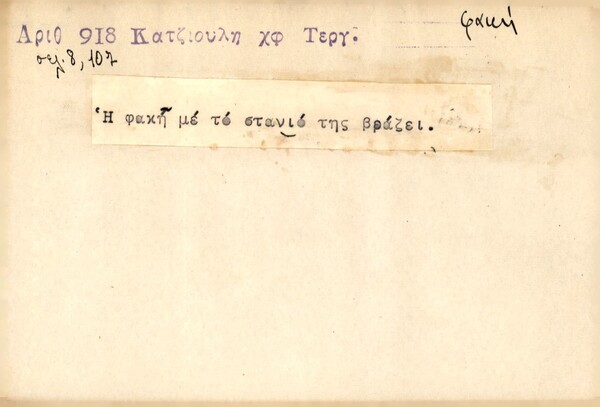 φακή
Αριθ 918 Κατζιουλη χφ Τεργ.
σελ. 8, 107
Ἡ φακῆ μέ τό στανιό της βράζει.